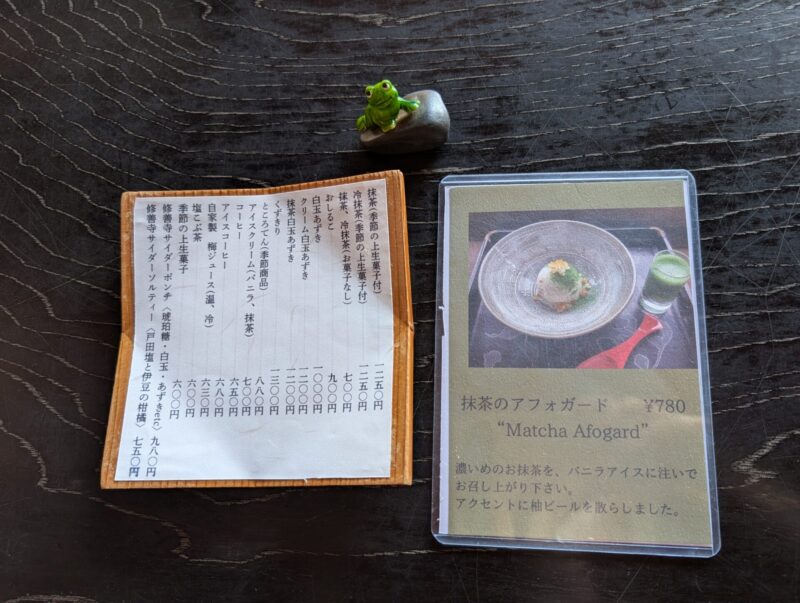 抹茶(季節の上生菓子付) 一二五〇円
冷抹茶(季節の上生菓子付) 一二五〇円
抹茶、冷抹茶(お菓子なし) 七〇〇円
おしるこ 九〇〇円
白玉あずき 一〇〇〇円
クリーム白玉あずき 一二〇〇円
抹茶白玉あずき 一二〇〇円
くずきり 一三〇〇円
ところてん(季節商品) 八八〇円
アイスクリーム(バニラ、抹茶) 七〇〇円
コーヒー 六五〇円
アイスコーヒー 六八〇円
自家製 梅ジュース(温、冷) 六三〇円
塩こぶ茶 六〇〇円
季節の上生菓子 六〇〇円
修善寺サイダーポンチ(琥珀糖・白玉・あずきetc) 九八〇円
修善寺サイダーソルティー(戸田塩と伊豆の柑橘) 七五〇円
抹茶のアフォガード ¥780
“Matcha Afogard”
濃いめのお抹茶を、バニラアイスに注いで
お召し上がり下さい。
アクセントに柚ピールを散らしました。